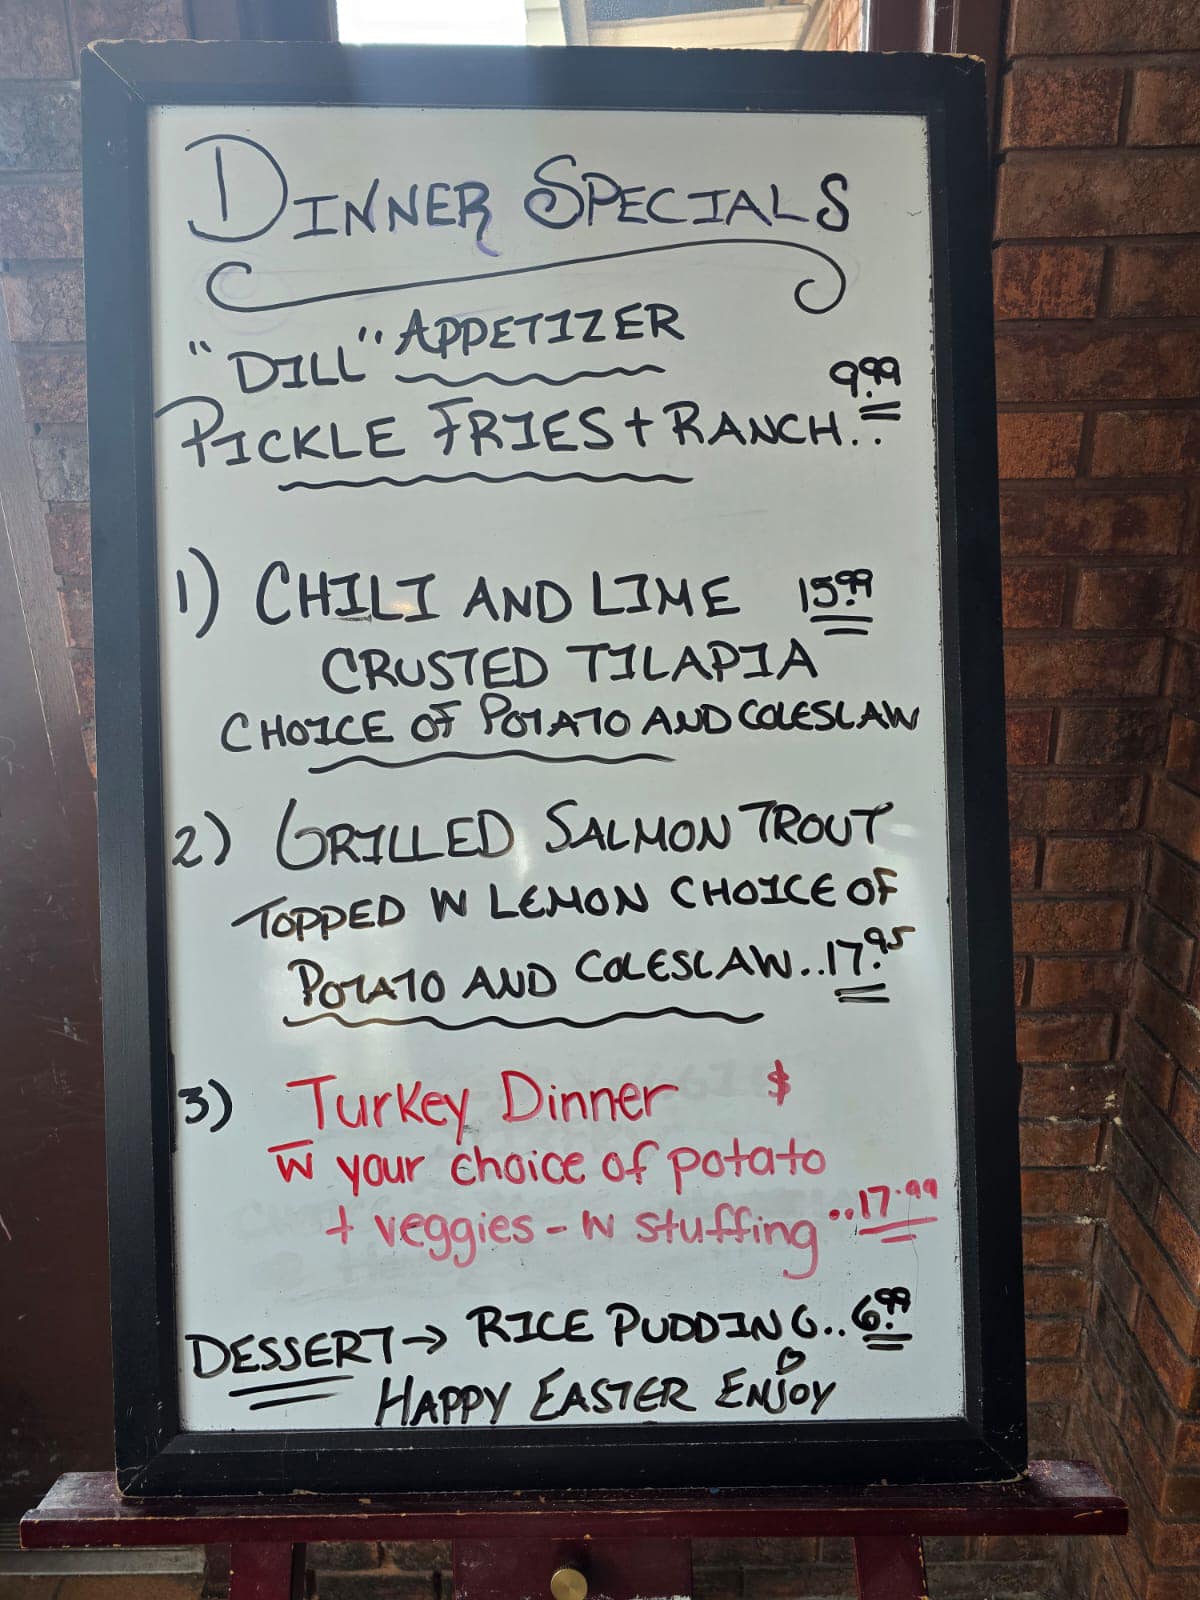 DINNER SPECIALS
"DILL" APPETIZER
9.99
PICKLE FRIES + RANCH..
1) CHILI AND LIME 15.99
CRUSTED TILAPIA
CHOICE OF POTATO AND COLESLAW
2) GRILLED SALMON TROUT
TOPPED W LEMON CHOICE OF
POTATO AND COLESLAW..17.95
3) Turkey Dinner $
W your choice of potato
+ veggies - W stuffing ..17.99
DESSERT → RICE PUDDING..6.99
HAPPY EASTER ENJOY